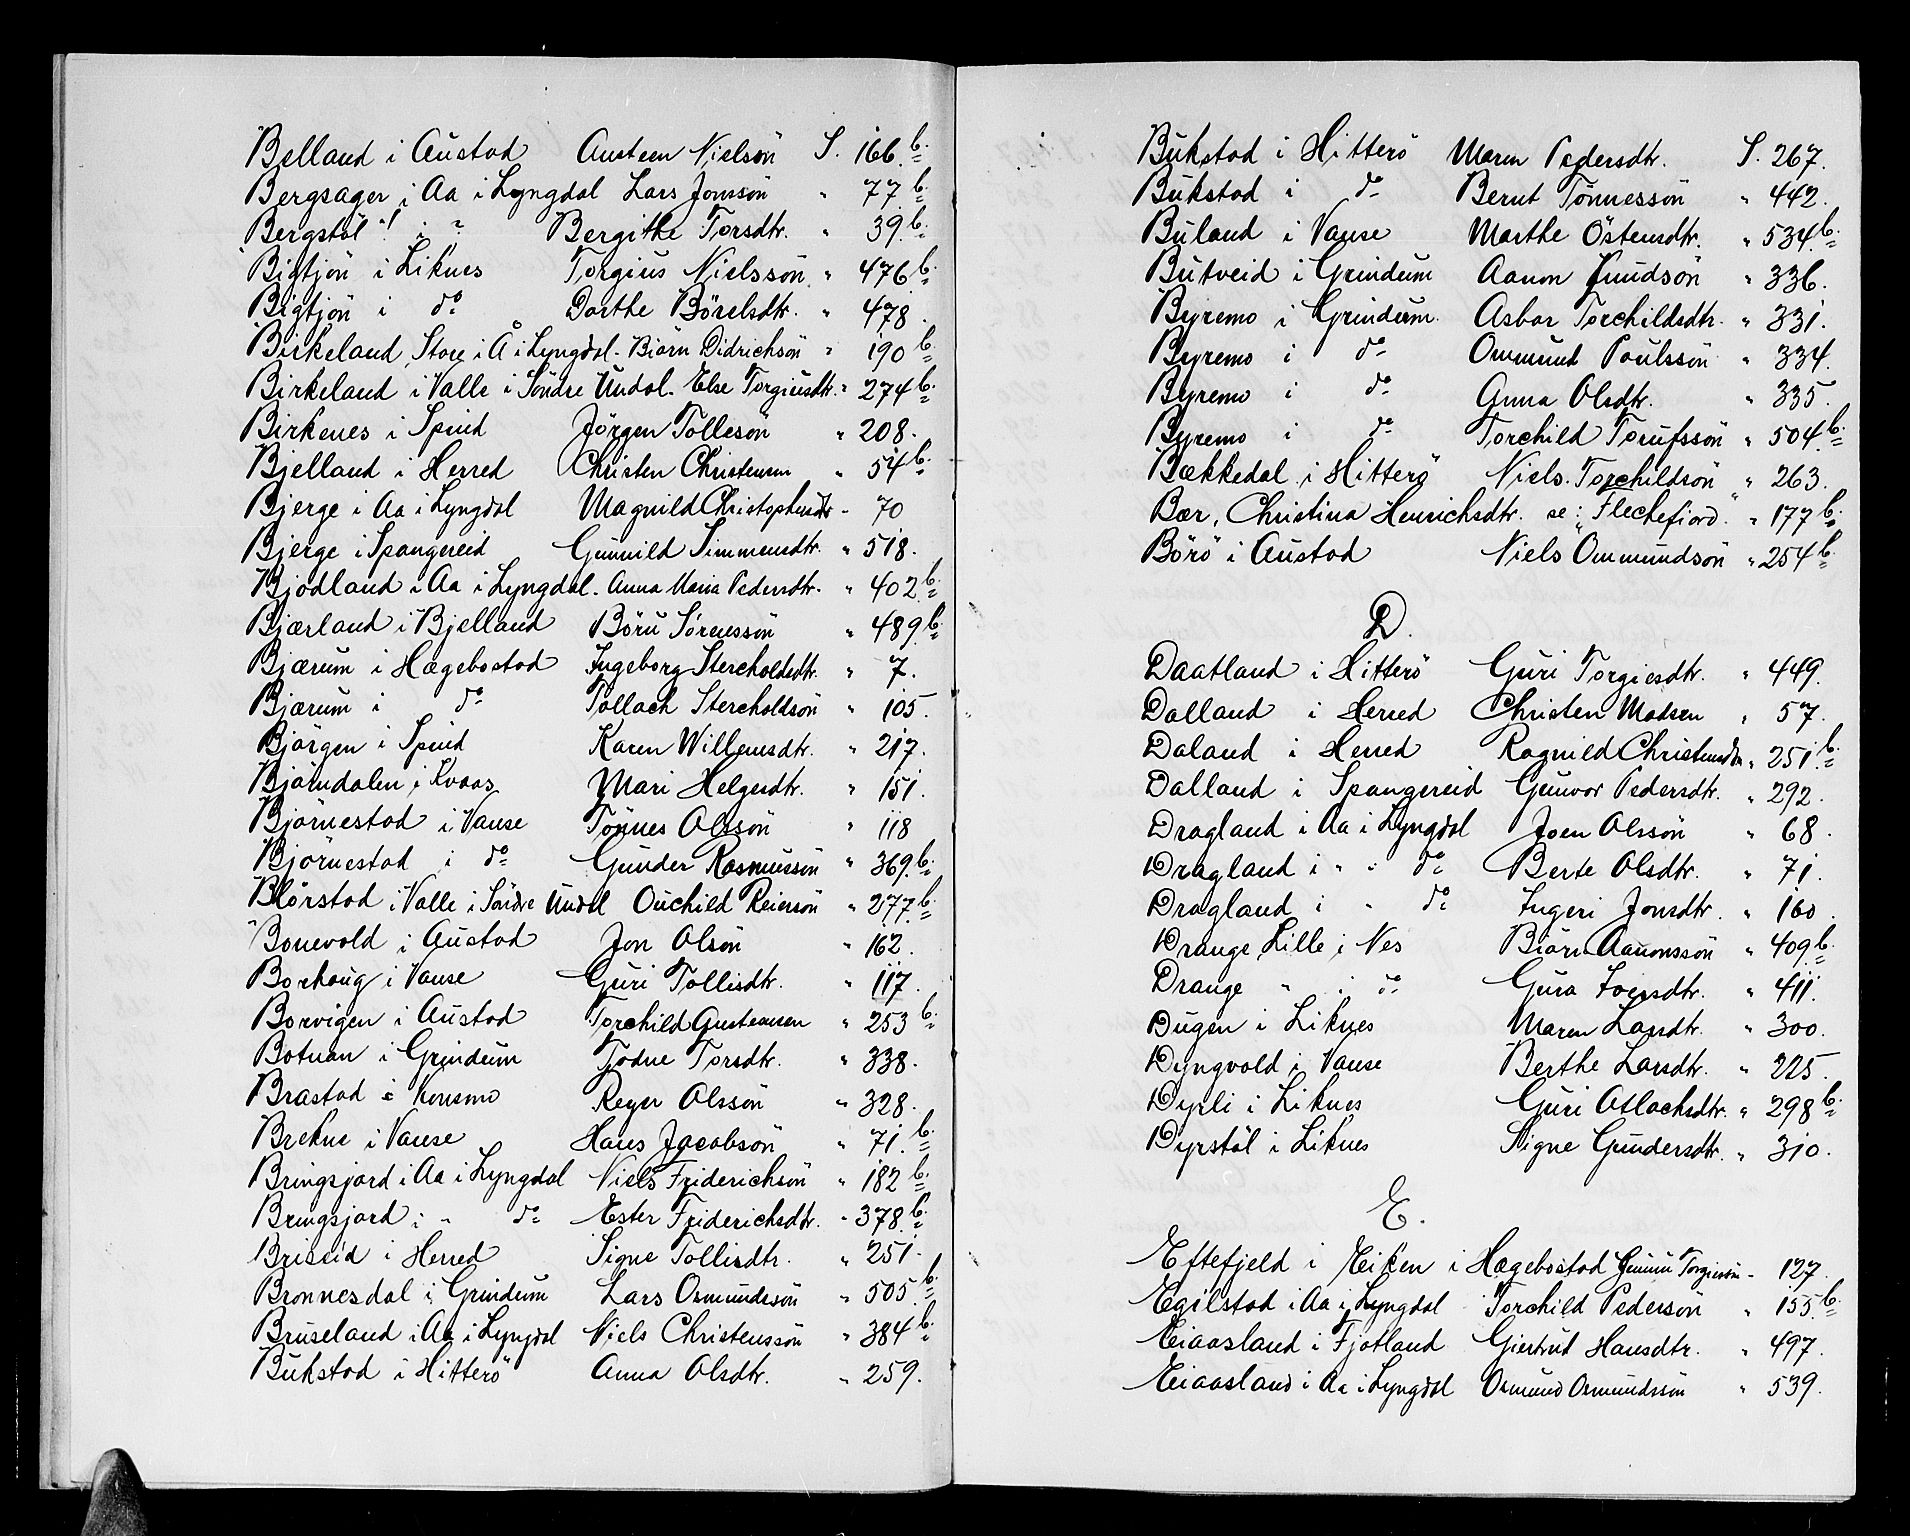 Belland i Austad Austeen Nielsön S. 166.b.
Bergsager i Aa i Lyngdal Lars Jonssön " 77.b.
Bergstöl ! i ? Bergithe Torsdtr. " 39.b.
Bigtjön i Liknes Torgius Nielssön " 476.b.
Bigtjön i do Dorthe Börelsdtr. " 478.
Birkeland, Store i Å i Lyngdal. Biörn Didrichsön " 190 b.
Birkeland i Valle i Söndre Undal. Else Torgiusdtr. " 274 b.
Birkenes i Spind Jörgen Tollesön " 208.
Bjelland i Herred Christen Christensen " 54 b.
Bjerge i Aa i Lyngdal Magnild Christophersdtr " 70
Bjerge i Spangereid Gunnild Simmensdtr. " 518.
Bjödland i Aa i Lyngdal. Anna Maria Pedersdtr. " 402.b.
Bjærland i Bjelland Böru Sörenssön " 489.b.
Bjærum i Hægebostad Ingeborg Stercholdsdtr. " 7.
Bjærum i do Tollach Stercholdsön " 105.
Bjørgen i Spind Karen Willemsdtr. " 217.
Bjørndalen i Kvaas Mari Helgesdtr. " 151.
Bjørnestad i Vanse Tönnes Olssön " 118
Bjørnestad i do Gunder Rasmussön " 369.b.
Blörstad i Valle i Söndre Undal Ouchild Reiersön " 277.b.
Bonevold i Austad Jon Olsön " 162.
Borhaug i Vanse Guri Tollisdtr. " 117.
Borvigen i Austad Torchild Gusteausen " 253 b.
Botnan i Grindum Todne Torsdtr. " 338.
Brastad i Konsmo Reyer Olssön " 328.
Brekne i Vanse Hans Jacobsön " 71.b.
Bringsjord i Aa i Lyngdal Niels Friderichsön " 182 b.
Bringsjord i " do Ester Friderichsdtr. " 378.b.
Briseid i Herred Signe Tollisdtr. " 251.
Bronnesdal i Grindum Lars Osmundsön " 505 b.
Bruseland i Aa i Lyngdal Niels Christenssön " 384 b.
Bukstad i Hitterö Anna Olsdtr. " 259.
Bukstad i Hitterö Maren Pedersdtr. S. 267.
Bukstad i do Bernt Tönnessön " 442.
Buland i Vanse Marthe Östensdtr. " 534.b.
Butveid i Grindum Aanon Knudsön " 336.
Byremo i Grindum. Asbor Torchildsdtr. " 331.
Byremo i do Ommund Poulssön " 334.
Byremo i do Anna Olsdtr. " 335.
Byremo i do Torchild Torufssön " 504.b.
Bækkedal i Hitterö Niels Torchildsön " 263.
Bær, Christina Henrichsdtr. se: "Flechefiord" " 177 b.
Börö i Austad Niels Ommundsön " 254 b.
D.
Daatland i Hitterö Guri Torgiesdtr. " 449.
Dalland i Herred Christen Madsen " 57.
Daland i Herred Ragnild Christensdtr " 251.b.
Dalland i Spangereid Gunvor Pedersdtr. " 292.
Dragland i Aa i Lyngdal Joen Olssön " 68.
Dragland i " " do Berte Olsdtr. " 71.
Dragland i " do Ingeri Jonsdtr. " 160.
Drange Lille i Nes Biörn Aanonssön " 409 b.
Drange " i do Gura Joensdtr. " 411.
Dugen i Liknes Maren Larsdtr. " 300.
Dyngvold i Vanse Berthe Larsdtr. " 225.
Dyrli i Liknes Guri Atlachsdtr. " 298 b.
Dyrstöl i Liknes Signe Gundersdtr. " 310.
E.
Eftefjeld i Eiken i Hægebostad Gunnu Torgiersön " 127.
Egilstad i Aa i Lyngdal Torchild Pedersön " 155.b.
Eiaasland i Fjotland Giertrud Hansdtr. " 497.
Eiaasland i Aa i Lyngdal Osmund Osmundssön " 539.